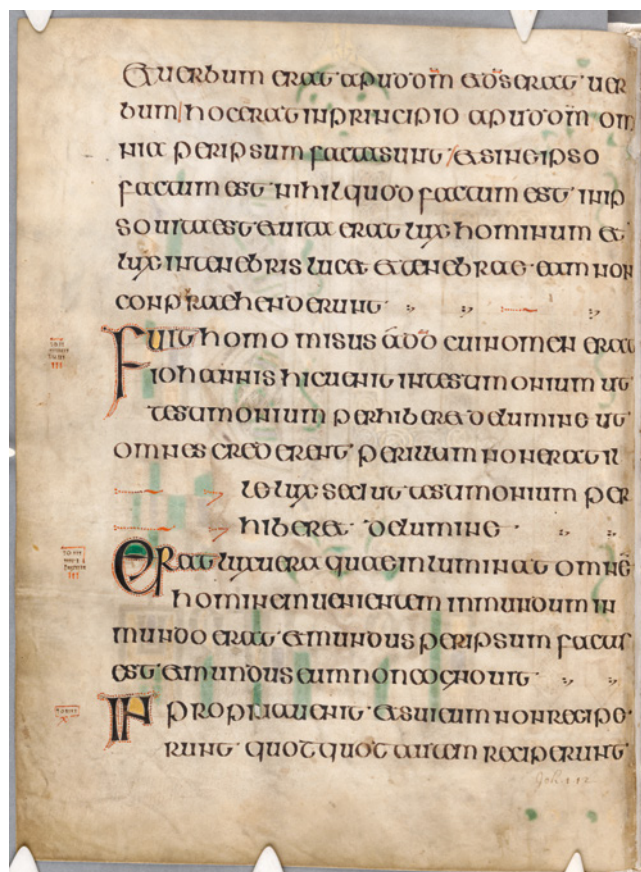 & uerbum erat apud dm̄ & ds̄ erat uer
bum hoc erat in principio apud dm̄ om
nia per ipsum facta sunt & sine ipso
factum est nihil quod factum est in ip
so uita est & uita erat lux hominum et
lux in tenebris lucet & tenebrae eam non
conpraehenderunt
Fuit homo misus a do cui nomen erat
iohannis hic uenit in testimonium ut
testimonium perhiberet de lumine ut
omnes crederent per illum non erat il
le lux sed ut testimonium per
hiberet de lumine
Erat lux uera quae inluminat omnē
hominem uenientem in mundum in
mundo erat & mundus per ipsum factus
est & mundus eum non cognouit
IN propria uenit & sui eum non recipe
runt quotquot autem reciperunt
Joh. 1 12